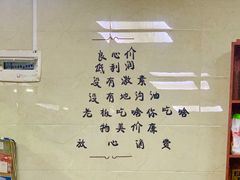 良心价
低利润
没有激素
没有地沟油
老板吃啥你吃啥
物美价廉
放心消费